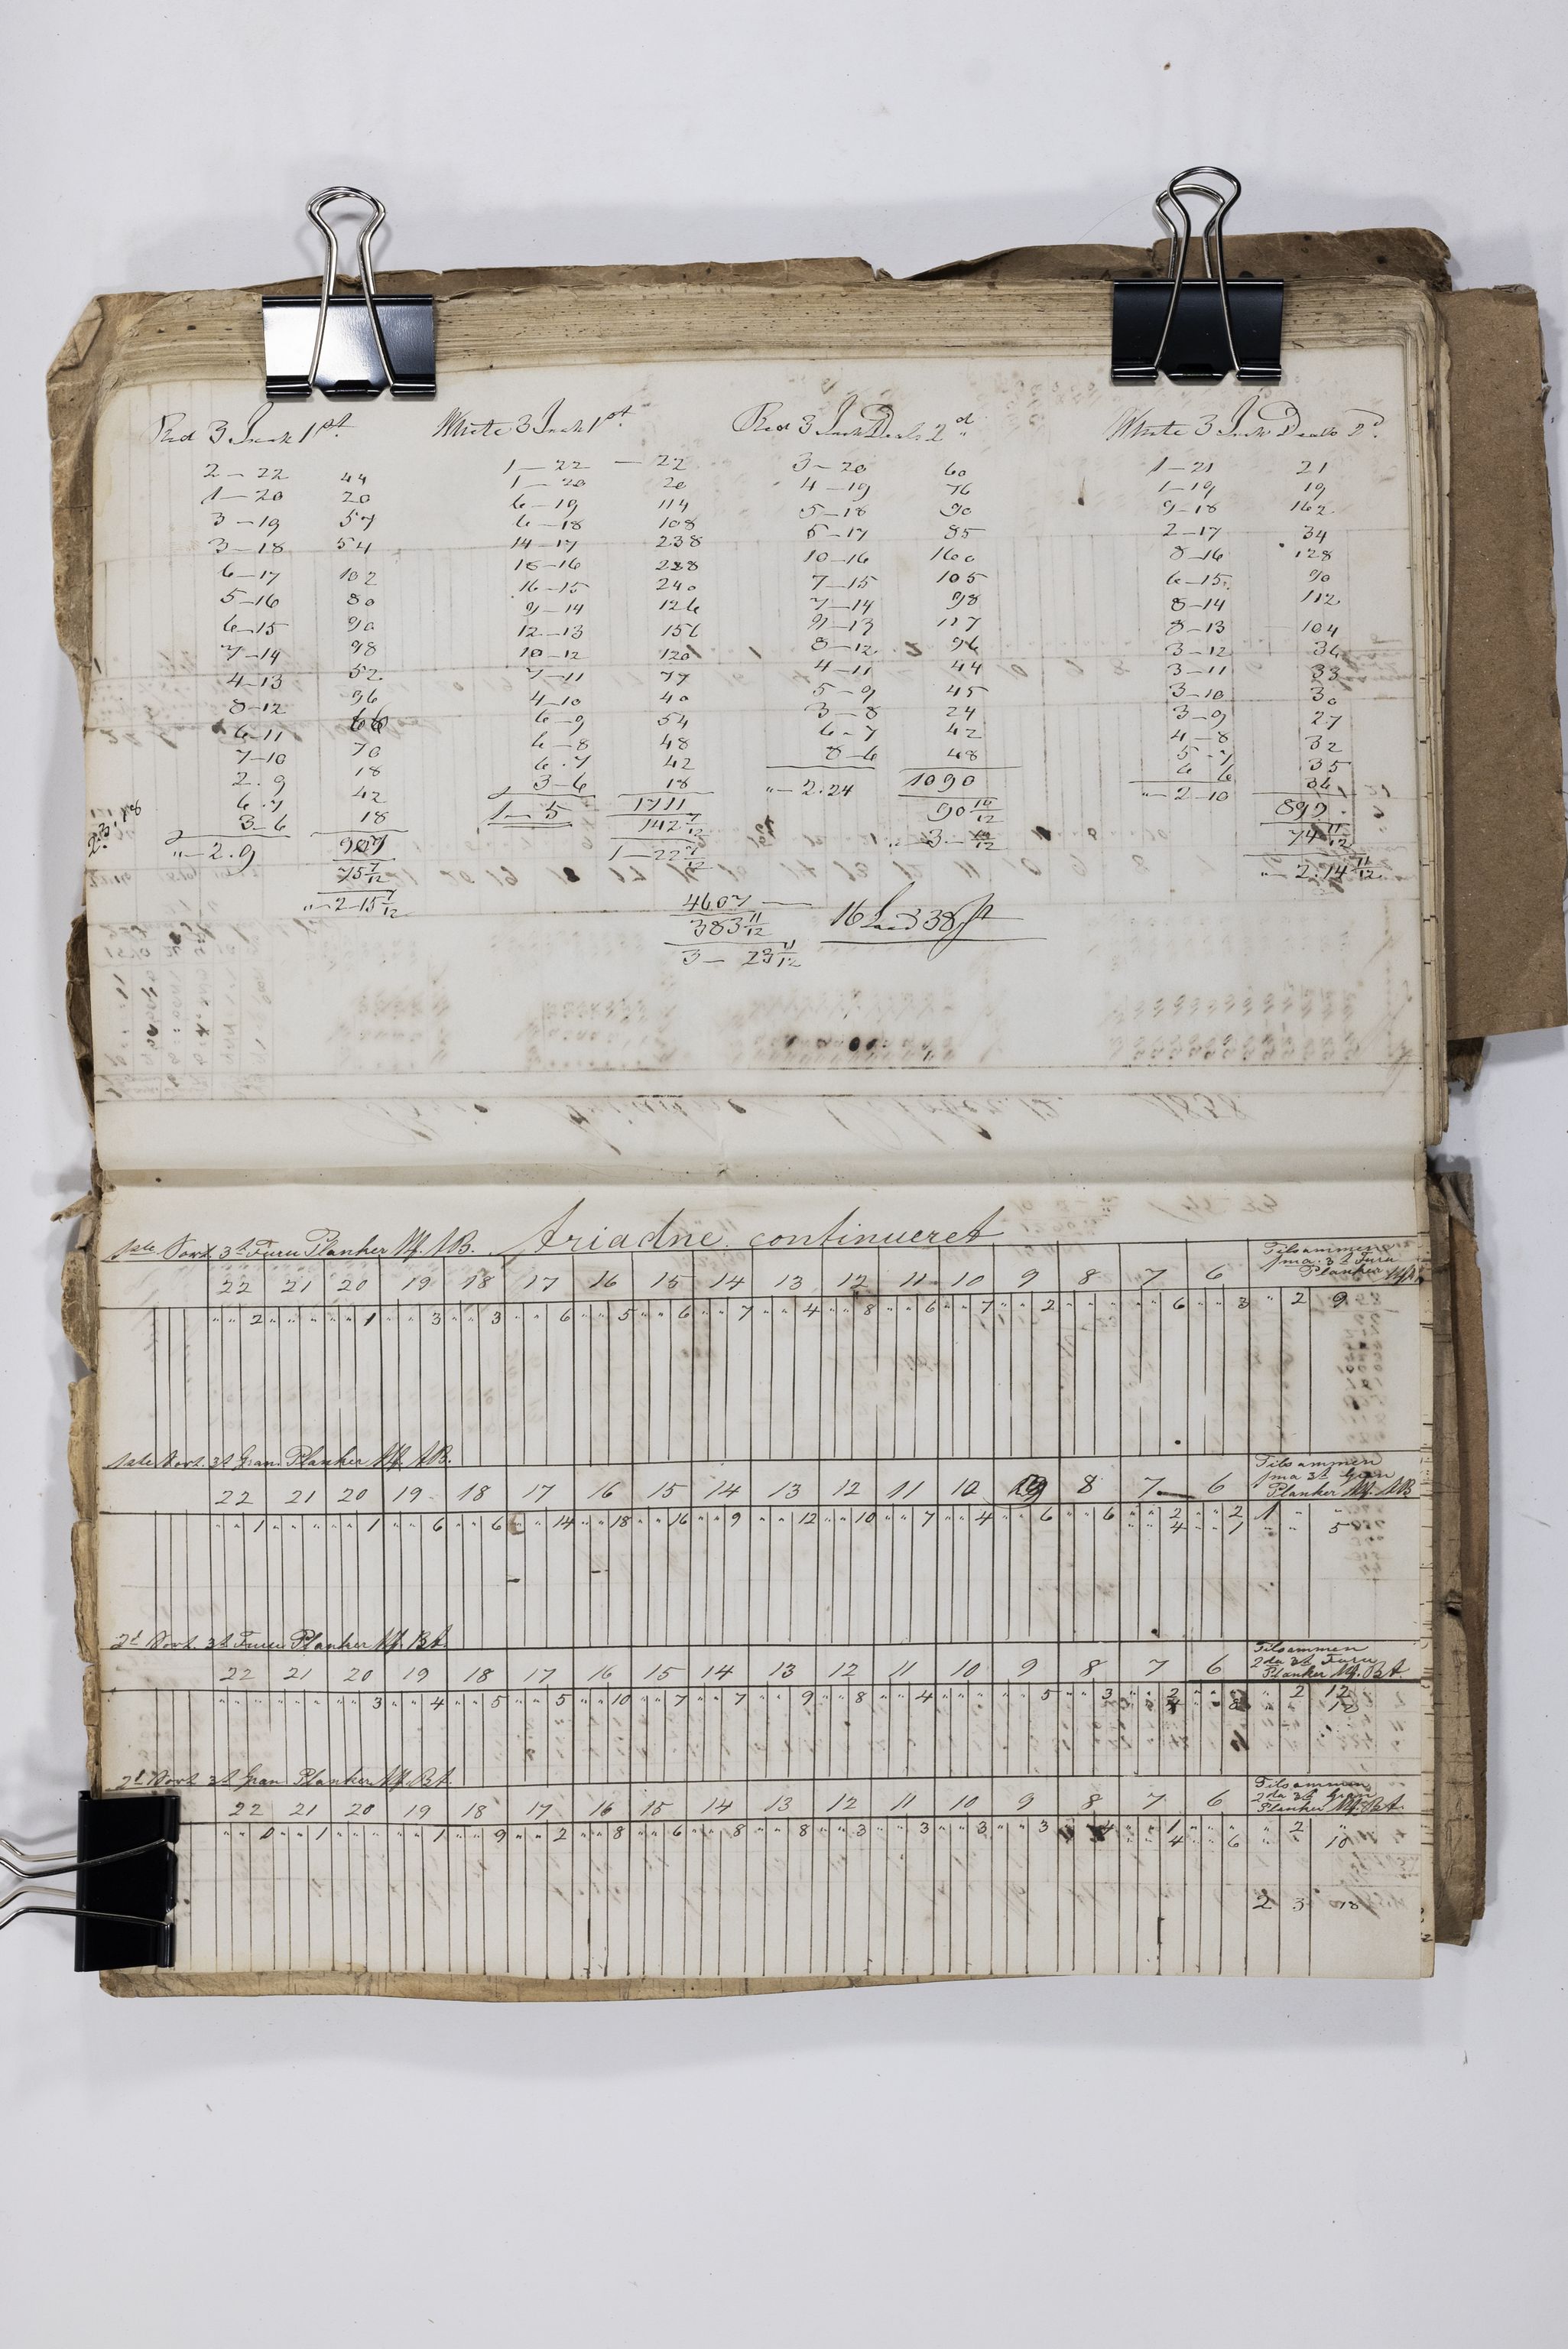 Red 3 Inch 1st. White 3 Inch 1st. Red 3 Inch Deals 2d White 3 Inch Deals 2d.
2 – 22 44 1 – 22 – 22 3 – 20 60 1 – 21 21
1 – 20 20 1 – 20 20 4 – 19 76 1 – 19 19
3 – 19 57 6 – 19 114 5 – 18 90 9 – 18 162
3 – 18 54 6 – 18 108 5 – 17 85 2 – 17 34
6 – 17 102 14 – 17 238 10 – 16 160 8 – 16 128
5 – 16 80 18 – 16 288 7 – 15 105 6 – 15 90
6 – 15 90 16 – 15 240 7 – 14 98 8 – 14 112
7 – 14 98 9 – 14 126 9 – 13 117 8 – 13 104
4 – 13 52 12 – 13 156 8 – 12 96 3 – 12 36
8 – 12 96 10 – 12 120 4 – 11 44 3 – 11 33
6 – 11 66 7 – 11 77 5 – 9 45 3 – 10 30
7 – 10 70 4 – 10 40 3 – 8 24 3 – 9 27
2 . 9 18 6 – 9 54 6 – 7 42 4 – 8 32
6 . 7 42 6 – 8 48 8 – 6 48 5 . 7 35
3 – 6 18 6 . 7 42 " – 2 . 24 1090 6 6 36
" – 2 . 9 907 3 – 6 18 90 10/12 " – 2 – 10 899
75 7/12 1 – " – 5 1711 3 – 10/12 74 11/12
" – 2 – 15 7/12 142 7/12 " – 2 . 14 11/12
1 – 22 7/12
4607 —
383 11/12 16 Lad 38 st
3 – 23 11/12
Ariadne continueret
1ste Sort. 3t. Furu Planker M. AB.
22 21 20 19 18 17 16 15 14 13 12 11 10 9 8 7 6 Tilsammen
1ma. 3t Furu
Planker M. AB
" " 2 " " " " " 1 " " 3 " " 3 " " 6 " " 5 " " 6 " " 7 " " 4 " " 8 " " 6 " " 7 " " 2 " " " " " 6 " " 3 " 2 9
1ste Sort. 3t Gran Planker M. AB.
22 21 20 19 18 17 16 15 14 13 12 11 10 9 8 7 6 Tilsammen
1ma 3t Gran
Planker M. AB
" " 1 " " " " " 1 " " 6 " " 6 " " 14 " " 18 " " 16 " " 9 " " 12 " " 10 " " 7 " " 4 " " 6 " " 6 " " 2 " " 2 1 "
" " 4 " " 1 " " 5
2d Sort. 3t Furu Planker M. BA.
22 21 20 19 18 17 16 15 14 13 12 11 10 9 8 7 6 Tilsammen
2da 3t Furu
Planker M. BA
" " " " " " " " 3 " " 4 " " 5 " " 5 " " 10 " " 7 " " 7 " " 9 " " 8 " " 4 " " " " " 5 " " 3 " " 2 " " 8 " 2 12
" " 4 12
2d Sort. 3t Gran Planker M. BA
22 21 20 19 18 17 16 15 14 13 12 11 10 9 8 7 6 Tilsammen
2da 3t Gran
Planker M. BA
" " " " 1 " " " " " 1 " " 9 " " 2 " " 8 " " 6 " " 8 " " 8 " " 3 " " 3 " " 3 " " 3 " " 4 " " 1 " 2 "
" " 4 " " 6 " " 10
2 3 18